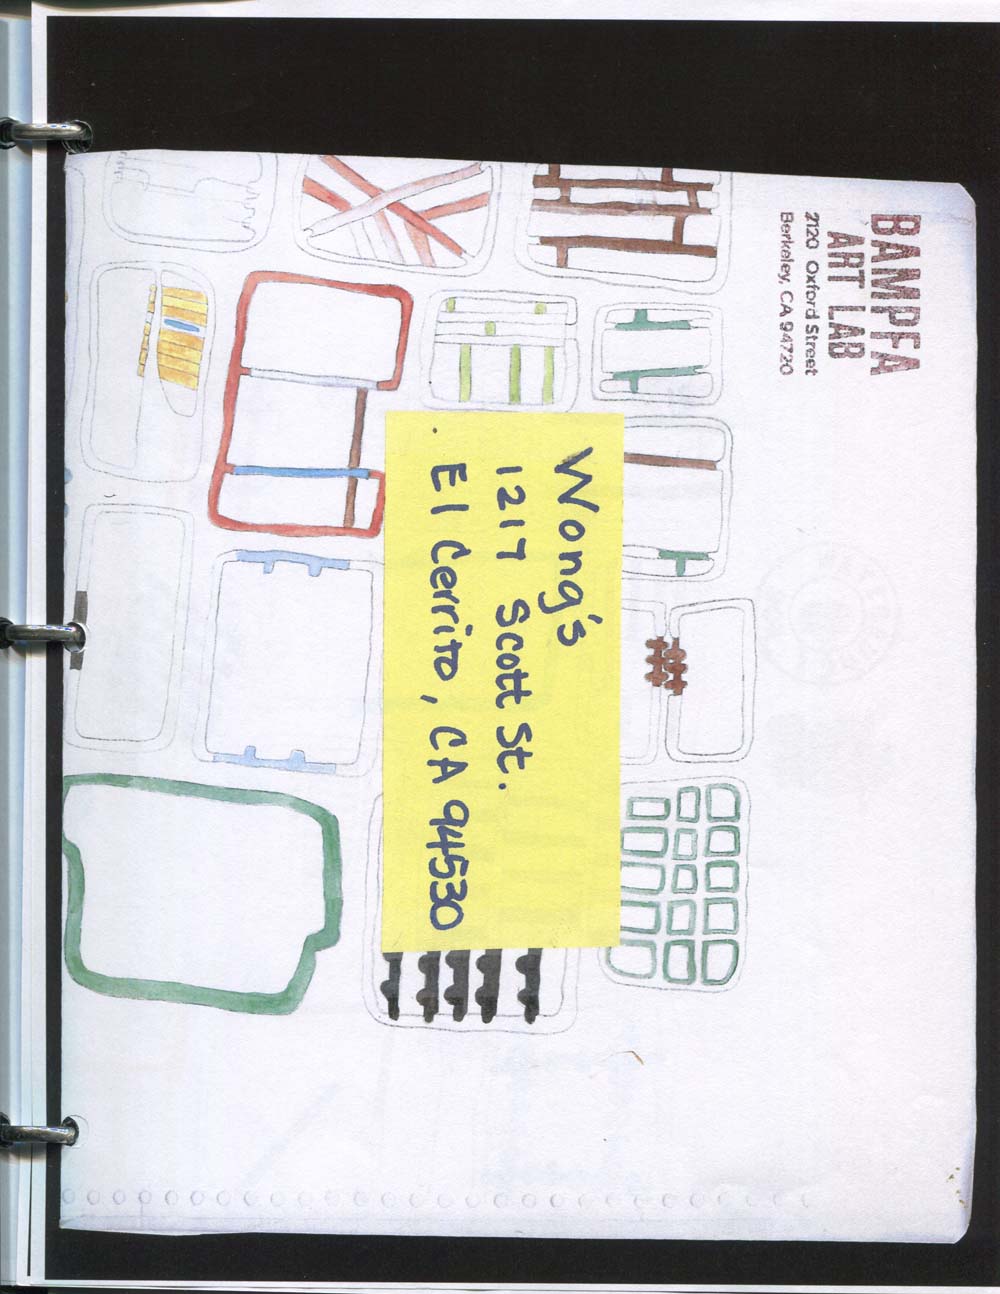 BAMPFA
ART LAB
2120 Oxford Street
Berkeley, CA 94720
Wong's
1217 Scott St.
El Cerrito, CA 94530